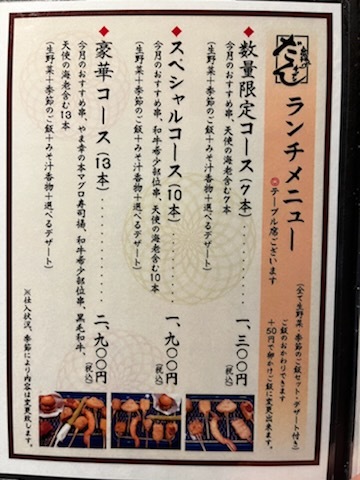 ランチメニュー
テーブル席ございます
(全て生野菜・季節のご飯セット・デザート付き)
ご飯のおかわりできます
+50円で卵かけご飯に変更出来ます。
◆数量限定コース(7本)・・・・・・・・一、三〇〇円(税込)
今月のおすすめ串、天使の海老含む7本
(生野菜+季節のご飯+みそ汁香物+選べるデザート)
◆スペシャルコース(10本)・・・・・・・一、九〇〇円(税込)
今月のおすすめ串、和牛希少部位串、天使の海老含む10本
(生野菜+季節のご飯+みそ汁香物+選べるデザート)
◆豪華コース(13本)・・・・・・・・二、九〇〇円(税込)
今月のおすすめ串、やま幸の本マグロ寿司揚、和牛希少部位串、黒毛和牛、
天使の海老含む13本
(生野菜+季節のご飯+みそ汁香物+選べるデザート)
※仕入状況、季節により内容は変更致します。